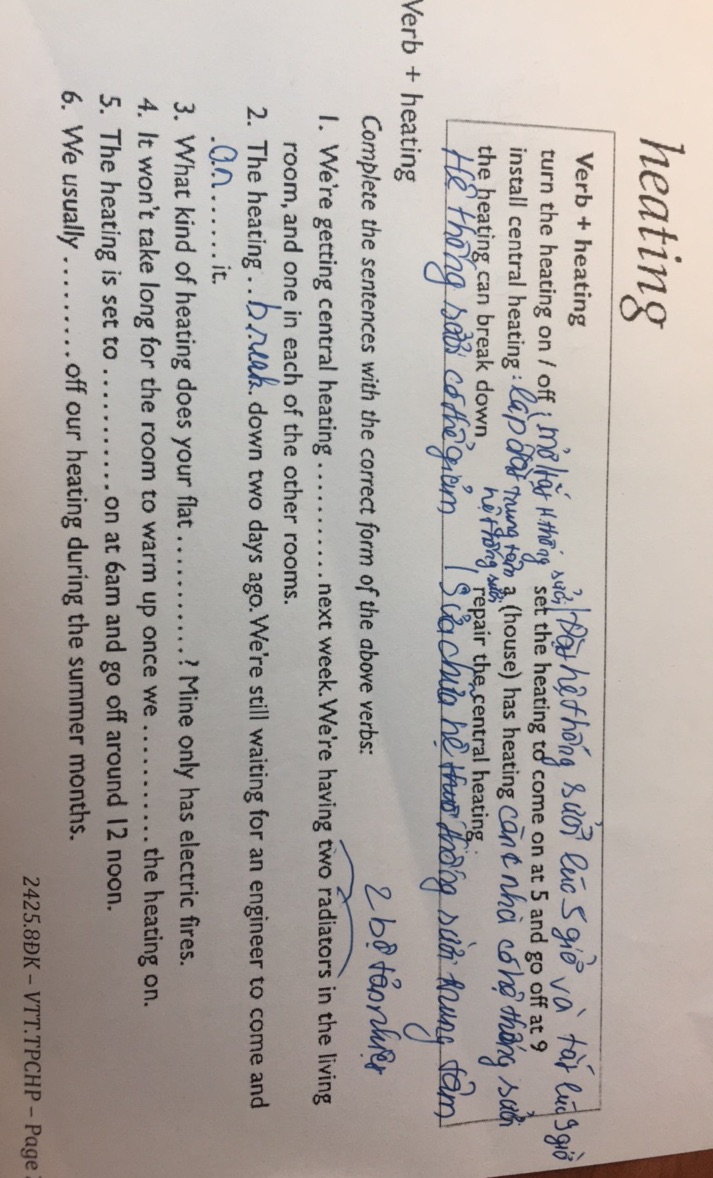 heating
Verb + heating
turn the heating on / off ; mở tắt H.thống sưởi set the heating to come on at 5 and go off at 9
Đặt hệ thống sưởi lúc 5 giờ và tắt lúc 9 giờ
install central heating : lắp đặt trung tâm hệ thống sưởi a (house) has heating căn nhà có hệ thống sưởi
the heating can break down repair the central heating
Hệ thống sưởi có thể Sửa chữa hệ thống sưởi trung tâm
Verb + heating
Complete the sentences with the correct form of the above verbs:
2 bộ tản nhiệt
1. We're getting central heating ........... next week. We're having two radiators in the living
room, and one in each of the other rooms.
2. The heating ..break. down two days ago. We're still waiting for an engineer to come and
.an......it.
3. What kind of heating does your flat ...........? Mine only has electric fires.
4. It won't take long for the room to warm up once we ........... the heating on.
5. The heating is set to ........... on at 6am and go off around 12 noon.
6. We usually ......... off our heating during the summer months.
2425.8ĐK – VTT.TPCHP – Page